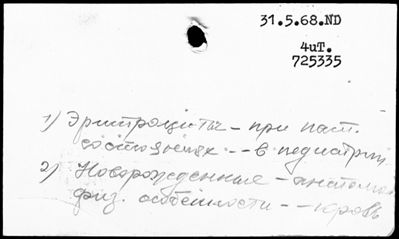 31.5.68.ND
4uT.
725335
1) Эритроциты – при пат.
состояниях -- в педиатрии
2) Новорожденные – анатомо
физ. особенности -- кровь